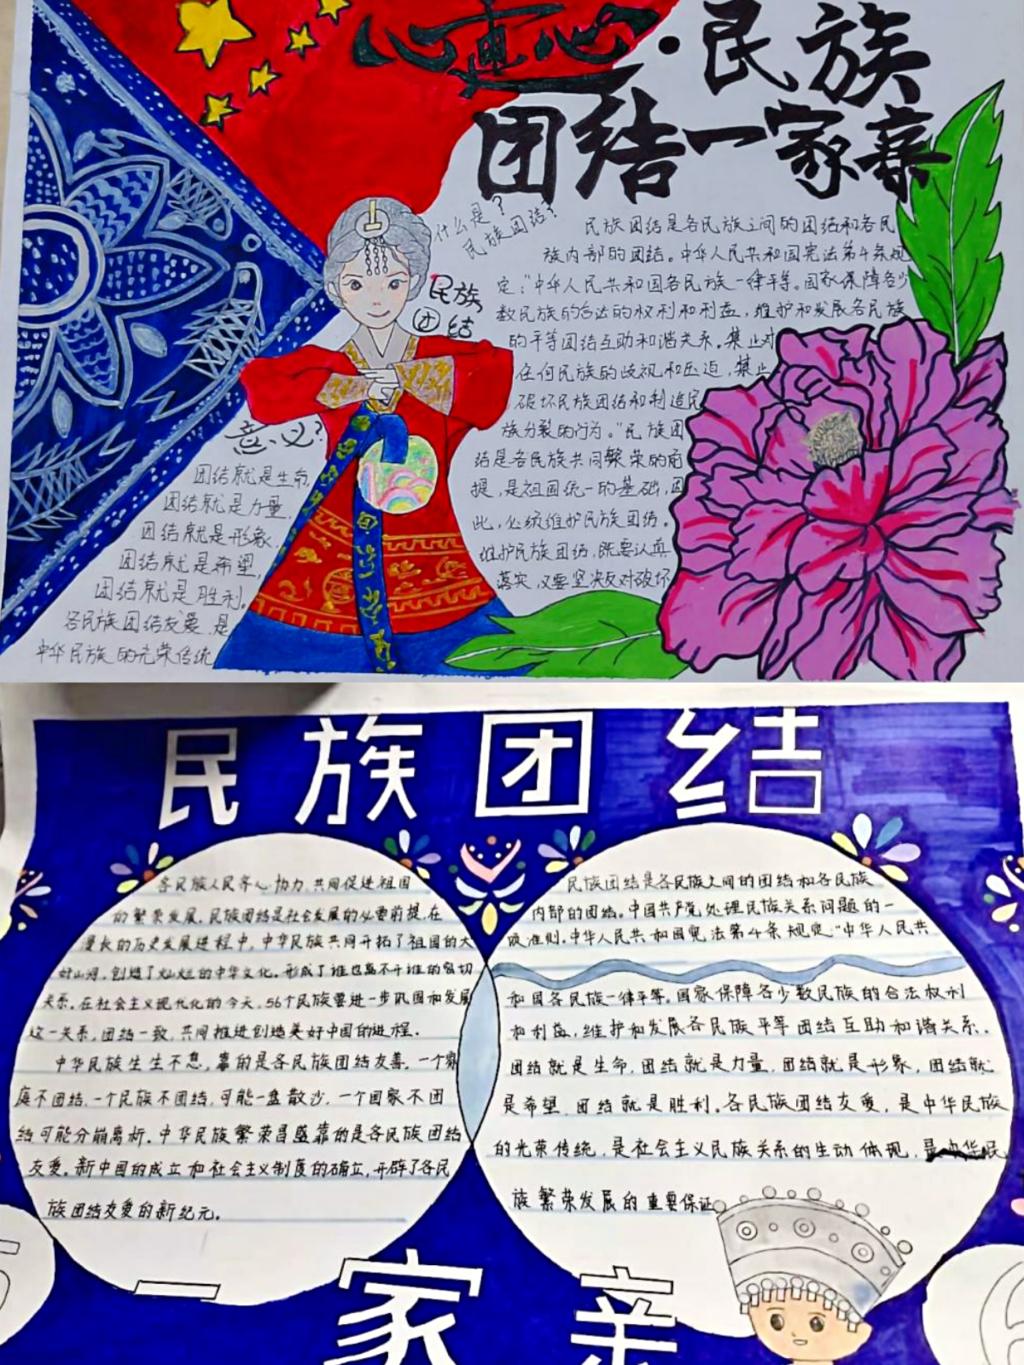 心连心·民族
团结一家亲
什么是?
民族团结?
民族
团结
民族团结是各民族之间的团结和各民
族内部的团结。中华人民共和国宪法第4条规
定:"中华人民共和国各民族一律平等。国家保障各少
数民族的合法的权利和利益,维护和发展各民族
的平等团结互助和谐关系。禁止对
任何民族的歧视和压迫,禁止
破坏民族团结和制造民
族分裂的行为。"民族团
结是各民族共同繁荣的前
提,是祖国统一的基础,因
此,必须维护民族团结。
维护民族团结,既要认真
落实,又要坚决反对破坏
意义?
团结就是生命,
团结就是力量,
团结就是形象,
团结就是希望,
团结就是胜利。
各民族团结友爱,是
中华民族的光荣传统
民族团结
各民族人民齐心协力,共同促进祖国
的繁荣发展,民族团结是社会发展的必要前提,在
漫长的历史发展进程中,中华民族共同开拓了祖国的大
好山河,创造了灿烂的中华文化。形成了谁也离不开谁的密切
关系。在社会主义现代化的今天,56个民族要进一步巩固和发展
这一关系,团结一致,共同推进创造美好中国的进程。
中华民族生生不息,靠的是各民族团结友善。一个家
庭不团结,一个民族不团结,可能一盘散沙,一个国家不团
结可能分崩离析。中华民族繁荣昌盛靠的是各民族团结
友爱。新中国的成立和社会主义制度的确立,开辟了各民
族团结友爱的新纪元。
民族团结是各民族之间的团结和各民族
内部的团结。中国共产党处理民族关系问题的一
政准则。中华人民共和国宪法第4条规定:"中华人民共
和国各民族一律平等。国家保障各少数民族的合法权利
和利益,维护和发展各民族平等团结互助和谐关系。
团结就是生命,团结就是力量,团结就是形象,团结就
是希望,团结就是胜利。各民族团结友爱,是中华民族
的光荣传统,是社会主义民族关系的生动体现,是中华民
族繁荣发展的重要保证
一家亲